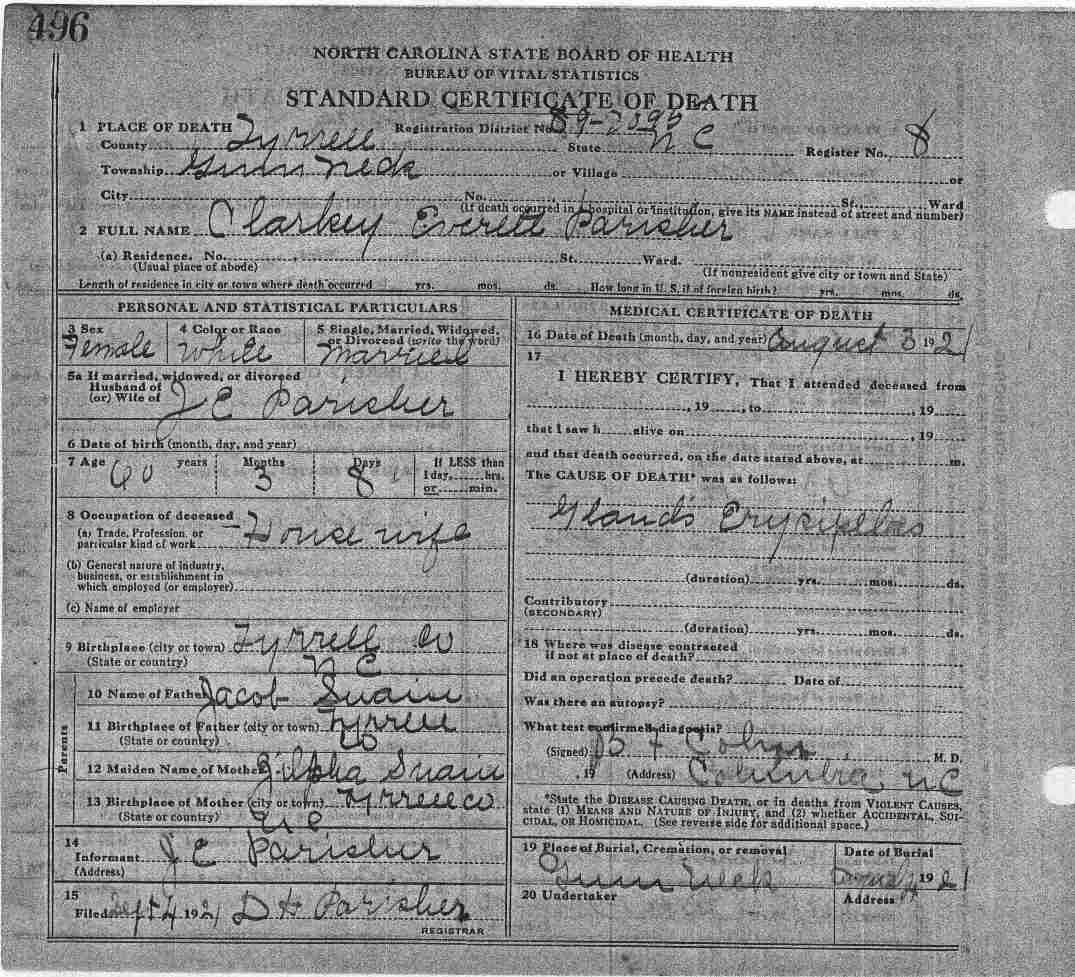 496
NORTH CAROLINA STATE BOARD OF HEALTH
BUREAU OF VITAL STATISTICS
STANDARD CERTIFICATE OF DEATH
1 PLACE OF DEATH Registration District No.
County Tyrrell State N C Register No. 8
Township Gum Neck or Village or
City No. St., Ward
(If death occurred in a hospital or institution, give its NAME instead of street and number)
2 FULL NAME Clarkey Everett Parisher
(a) Residence. No. , St. Ward.
(Usual place of abode) (If nonresident give city or town and State)
Length of residence in city or town where death occurred yrs. mos. ds. How long in U. S. if of foreign birth? yrs. mos. ds.
PERSONAL AND STATISTICAL PARTICULARS
3 Sex 4 Color or Race 5 Single, Married, Widowed, or Divorced (write the word)
Female White Married
5a If married, widowed, or divorced
Husband of
(or) Wife of J C Parisher
6 Date of birth (month, day, and year)
7 Age 60 years Months 3 Days 8 If LESS than
1 day, hrs.
or min.
8 Occupation of deceased
(a) Trade, Profession, or
particular kind of work House wife
(b) General nature of industry,
business, or establishment in
which employed (or employer)
(c) Name of employer
9 Birthplace (city or town) Tyrrell Co
(State or country) N C
Parents
10 Name of Father Jacob Swain
11 Birthplace of Father (city or town) Tyrrell
(State or country) Co
12 Maiden Name of Mother Zilpha Swain
13 Birthplace of Mother (city or town) Tyrrell co
(State or country) N C
14
Informant J C Parisher
(Address)
15
Filed Sept 4 1921 D H Parisher
REGISTRAR
MEDICAL CERTIFICATE OF DEATH
16 Date of Death (month, day, and year) August 3 1921
17
I HEREBY CERTIFY, That I attended deceased from
, 19 , to , 19
that I saw h alive on , 19
and that death occurred, on the date stated above, at m.
The CAUSE OF DEATH* was as follows:
Glands Erysipelas
(duration) yrs. mos. ds.
Contributory
(SECONDARY)
(duration) yrs. mos. ds.
18 Where was disease contracted
if not at place of death?
Did an operation precede death? Date of
Was there an autopsy?
What test confirmed diagnosis?
(Signed) B F , M. D.
, 19 (Address) Columbia NC
*State the DISEASE CAUSING DEATH, or in deaths from VIOLENT CAUSES,
state (1) MEANS AND NATURE OF INJURY, and (2) whether ACCIDENTAL, SUI-
CIDAL, OR HOMICIDAL. (See reverse side for additional space.)
19 Place of Burial, Cremation, or removal Date of Burial
Gum Neck 1921
20 Undertaker Address